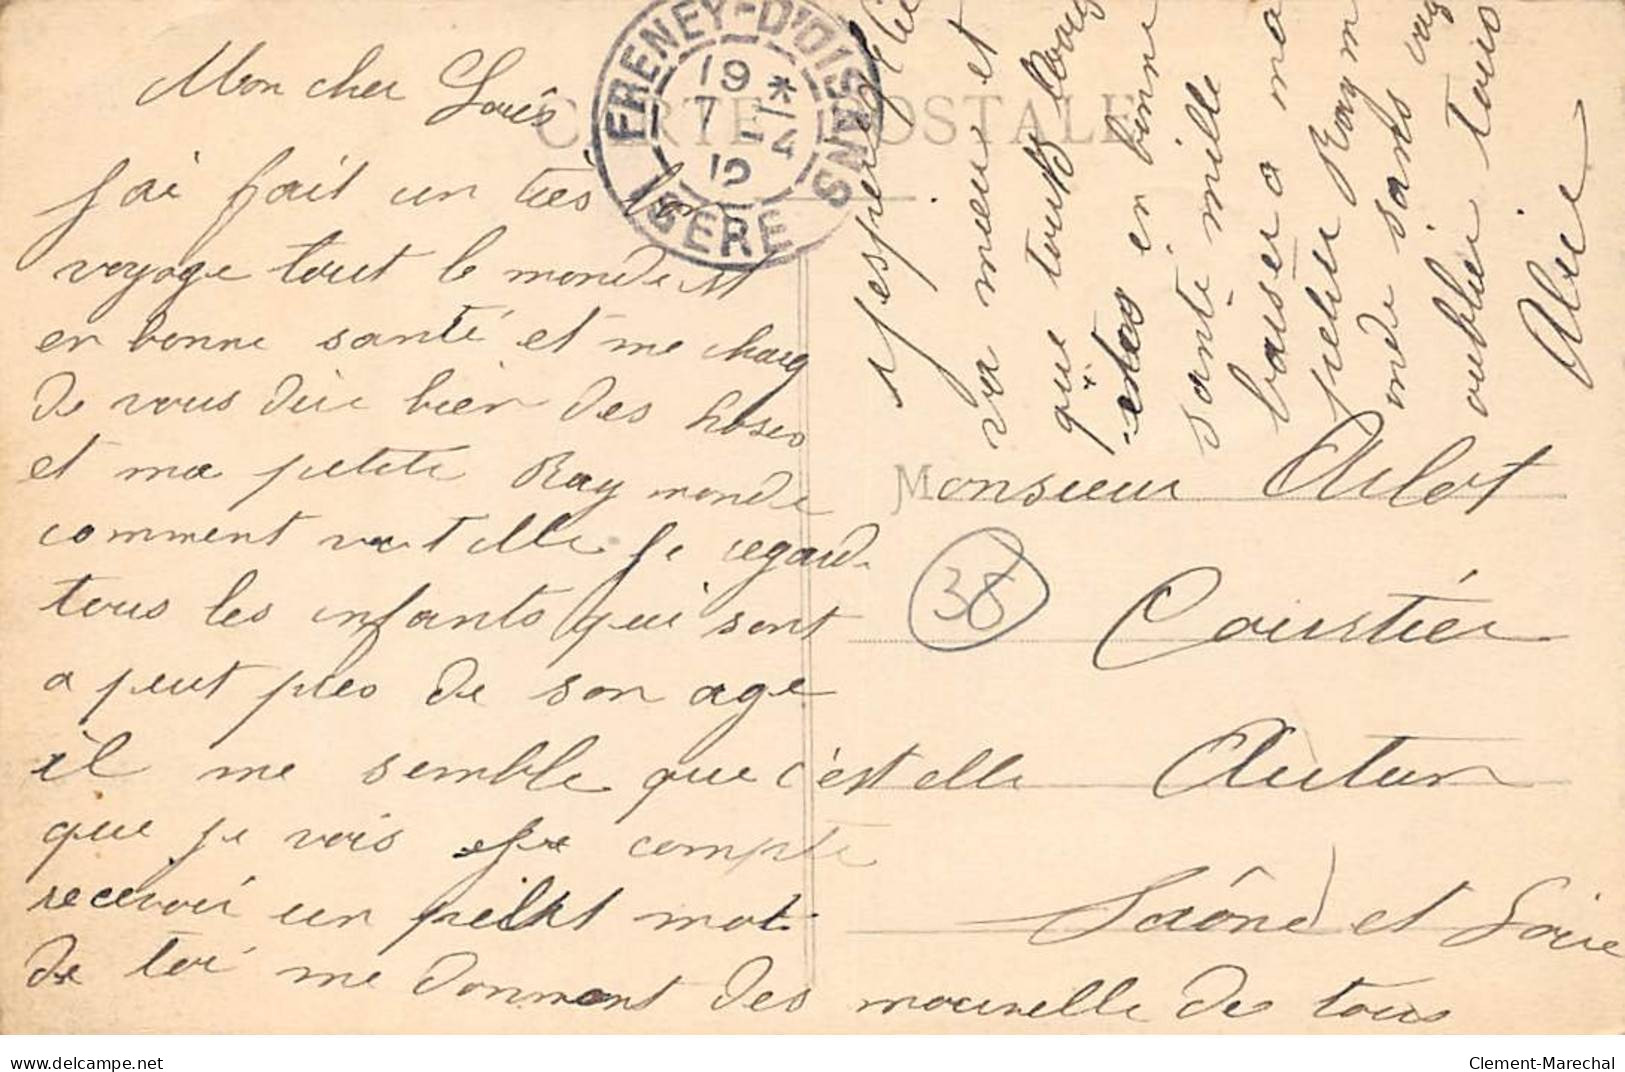 Mon cher Louis
J'ai fait un très bon
voyage tout le monde est
en bonne santé et me charg
de vous dire bien des choses
et ma petite Raymonde
comment va t elle je regarde
tous les enfants qui sont
a peut pres de son age
il me semble que c'est elle
que je vois je compte
recevoir un petit mot
de toi me donnent des nouvelle de tous
j'espere qu'elie
va mieux et
que tout
en bonne
santé mille
baiser a ma
petite Raym
onde sans
oublier tous
Alie
CARTE POSTALE
FRENEY-D'OISANS
19 *
7 - 4
12
ISERE
Monsieur Arlot
38
Coustier
Autun
Saône et Loire
Clement-Marechal